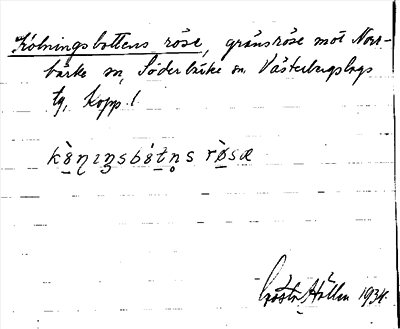 Kölningsbottens röse, gränsröse mot Norr-
bärke sn, Söderbärke sn Västerbergslags
tg, Kopp. l.
kö̀ηıŋsbót̩n̥s rö̀sæ
Gösta Hallen 1934.